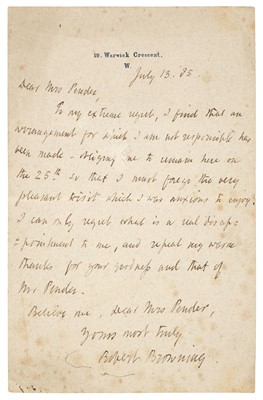 19. Warwick Crescent.
W
July 13. 85.
Dear Mrs Pender,
To my extreme regret, I find that an
arrangement for which I am not responsible has
been made – obliging me to remain here on
the 25th so that I must forego the very
pleasant visit which I was anxious to enjoy.
I can only regret what is a real disap=
=pointment to me, and repeat my warm
thanks for your goodness and that of
Mr Pender.
Believe me, dear Mrs Pender,
Yours most truly
Robert Browning.